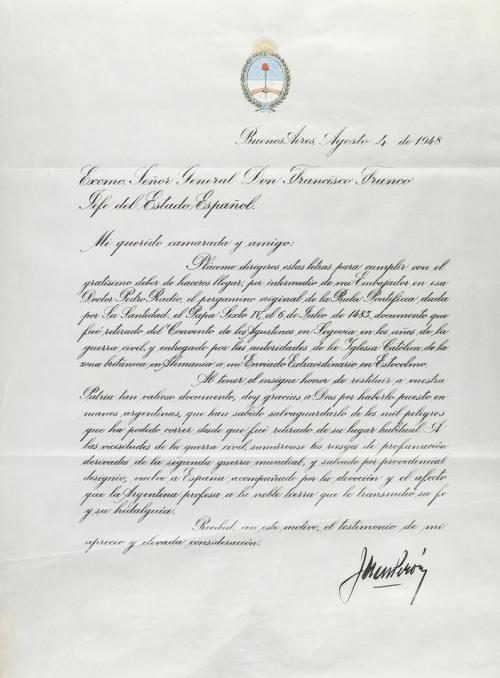 Buenos Aires, Agosto 4 de 1948
Excmo. Señor General Don Francisco Franco
Jefe del Estado Español.
Mi querido camarada y amigo:
Pláceme dirigiros estas letras para cumplir con el
gratísimo deber de haceros llegar, por intermedio de mi Embajador en esa
Doctor Pedro Radío, el pergamino original de la Bula Pontificia, dada
por Su Santidad, el Papa Sixto IV, el 6 de Julio de 1483, documento que
fué retirado del Convento de los Agustinos en Segovia en los años de la
guerra civil, y entregado por las autoridades de la Iglesia Católica, de la
zona británica en Alemania a mi Enviado Extraordinario en Estocolmo.
Al tener el insigne honor de restituir a vuestra
Patria tan valioso documento, doy gracias a Dios por haberlo puesto en
manos argentinas, que han sabido salvaguardarlo de los mil peligros
que ha podido correr desde que fué retirado de su lugar habitual. A
las vicisitudes de la guerra civil, sumáronse los riesgos de profanación
derivados de la segunda guerra mundial, y salvado por providencial
designio, vuelve a España acompañado por la devoción y el afecto
que la Argentina profesa a la noble tierra que le transmitió su fe
y su hidalguía.
Recibid, con este motivo, el testimonio de mi
aprecio y elevada consideración.
Juan Perón